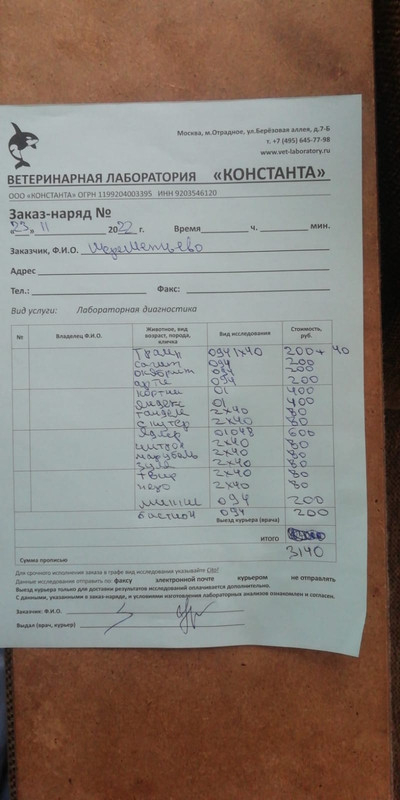 Москва, м.Отрадное, ул.Берёзовая аллея, д.7-Б
т. +7 (495) 645-77-98
www.vet-laboratory.ru
ВЕТЕРИНАРНАЯ ЛАБОРАТОРИЯ «КОНСТАНТА»
ООО «КОНСТАНТА» ОГРН 1199204003395 ИНН 9203546120
Заказ-наряд №
«23» 11 2022 г. Время ч. мин.
Заказчик, Ф.И.О. Шереметьево
Адрес
Тел.: Факс:
Вид услуги: Лабораторная диагностика
№ Владелец Ф.И.О. Животное, вид возраст, порода, кличка Вид исследования Стоимость, руб.
094 1х40 200+40
094 200
094 200
094 200
01 400
Яндекс 01 400
2х40 80
2х40 80
01048 600
2х40 80
2х40 80
2х40 80
2х40 80
2х40 80
094 200
бастион 094 200
Выезд курьера (врача)
ИТОГО
3140
Сумма прописью
Для срочного исполнения заказа в графе вид исследования указывайте Cito!
Данные исследования отправить по: факсу электронной почте курьером не отправлять
Выезд курьера только для доставки результатов исследований оплачивается дополнительно.
С данными, указанными в заказ-наряде, и условиями изготовления лабораторных анализов ознакомлен и согласен.
Заказчик: Ф.И.О.
Выдал (врач, курьер)